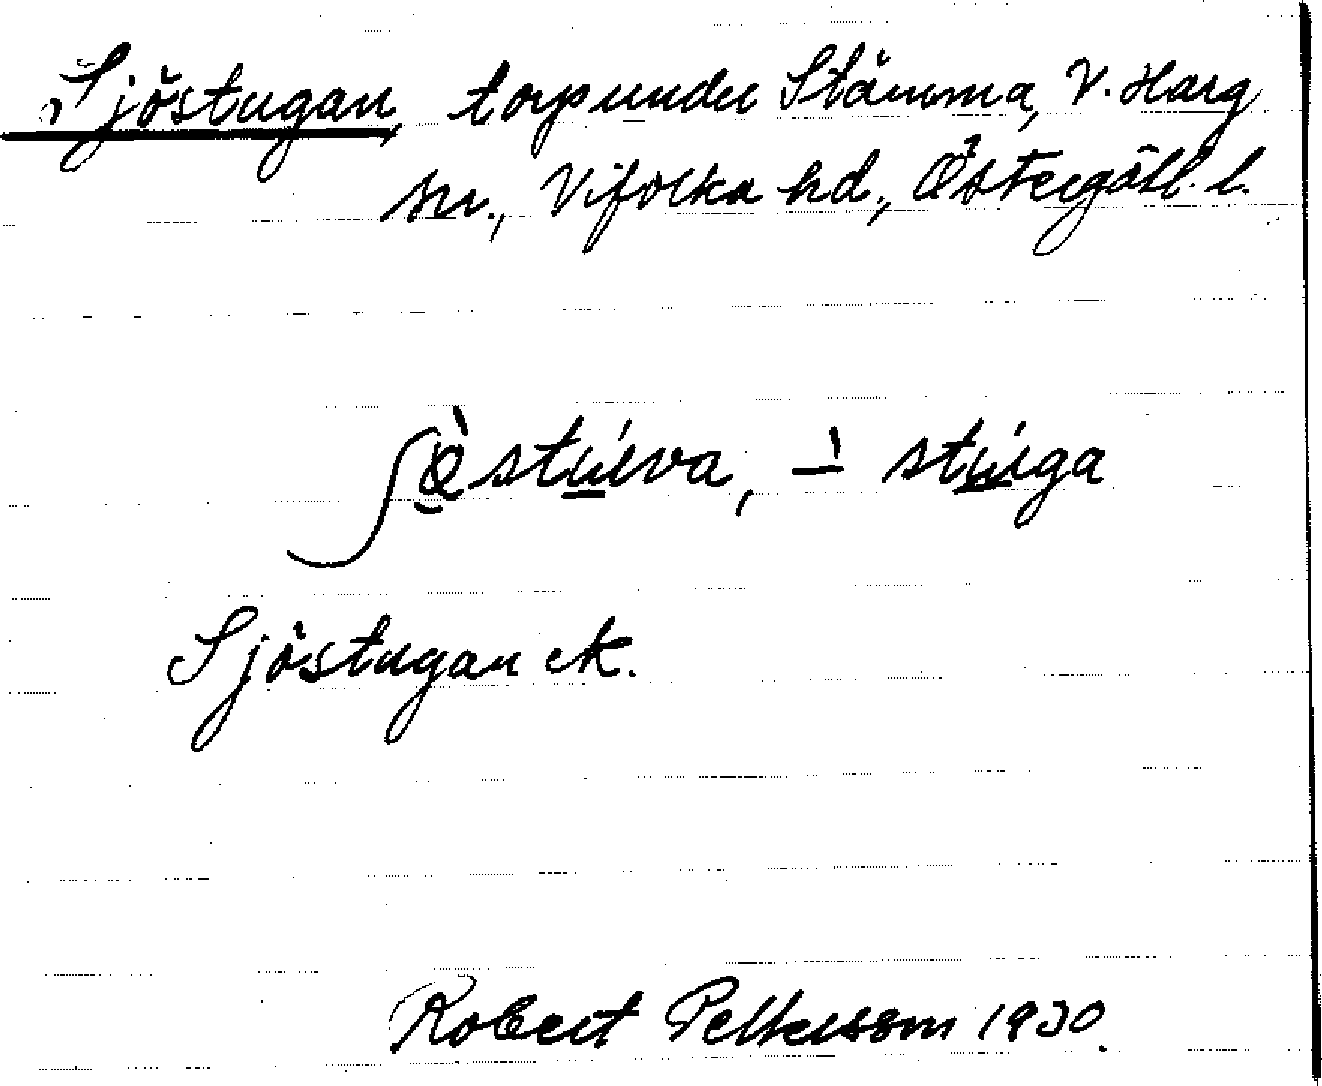 Sjöstugan, torp under Stämma, V. Harg
sn., Vifolka hd., Östergötl. l.
ʃø̀stú̲va, –̀ stú̲ga
Sjöstugan ek.
Robert Pettersson 1930.